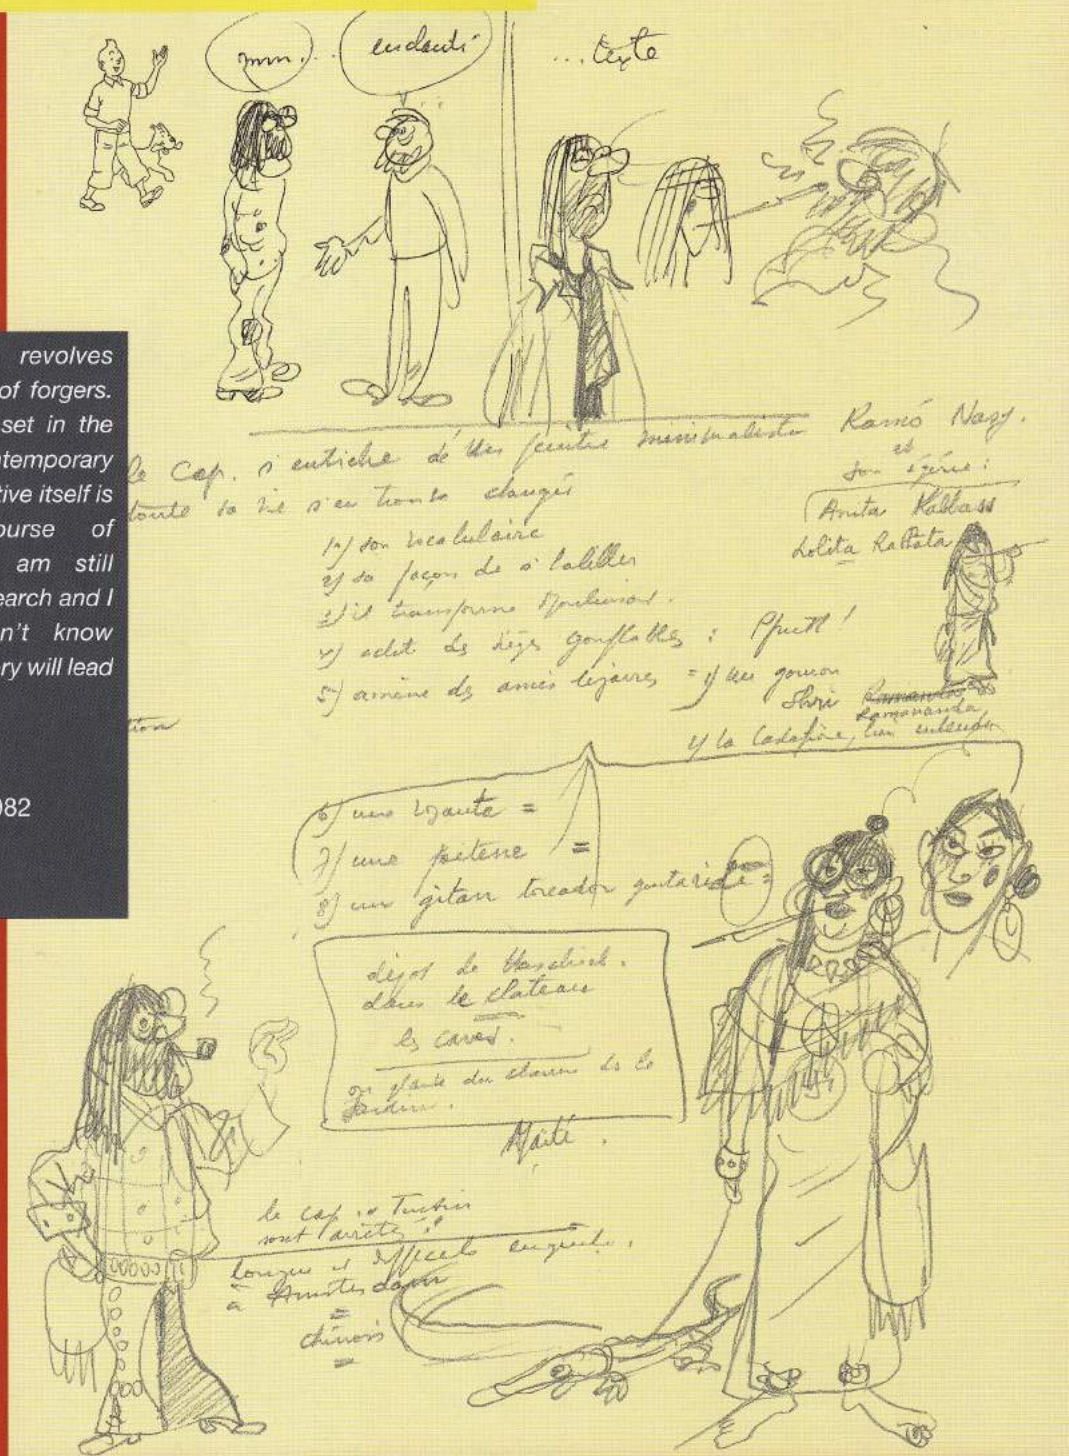 mm...
... texte
revolves
of forgers.
set in the
ntemporary
tive itself is
ourse of
am still
earch and I
n't know
ry will lead
982
le Cap. s'entiche d'un peintre minimaliste Ramó Nazj.
et
son égérie :
toute sa vie s'en trouve changée
Anita
Lolita
1°) son vocabulaire
2) sa façon de s'habiller
3) il transforme Moulinsart.
4) acht des sièges gonflables : Pfuett !
5) amène des amis bizarres = 1) un gourou
Shri Ramananda
2) la Castafiore, bien entendu
6) une voyante =
7) une poétesse =
8) un gitan toreador guitariste =
dépot de Haschich.
dans le château
les caves.
on plante du chanvre ds le
jardin.
le cap. et Tintin
sont arrêtés !!
longue et difficile enquête.
à Amsterdam
=
chinois
=